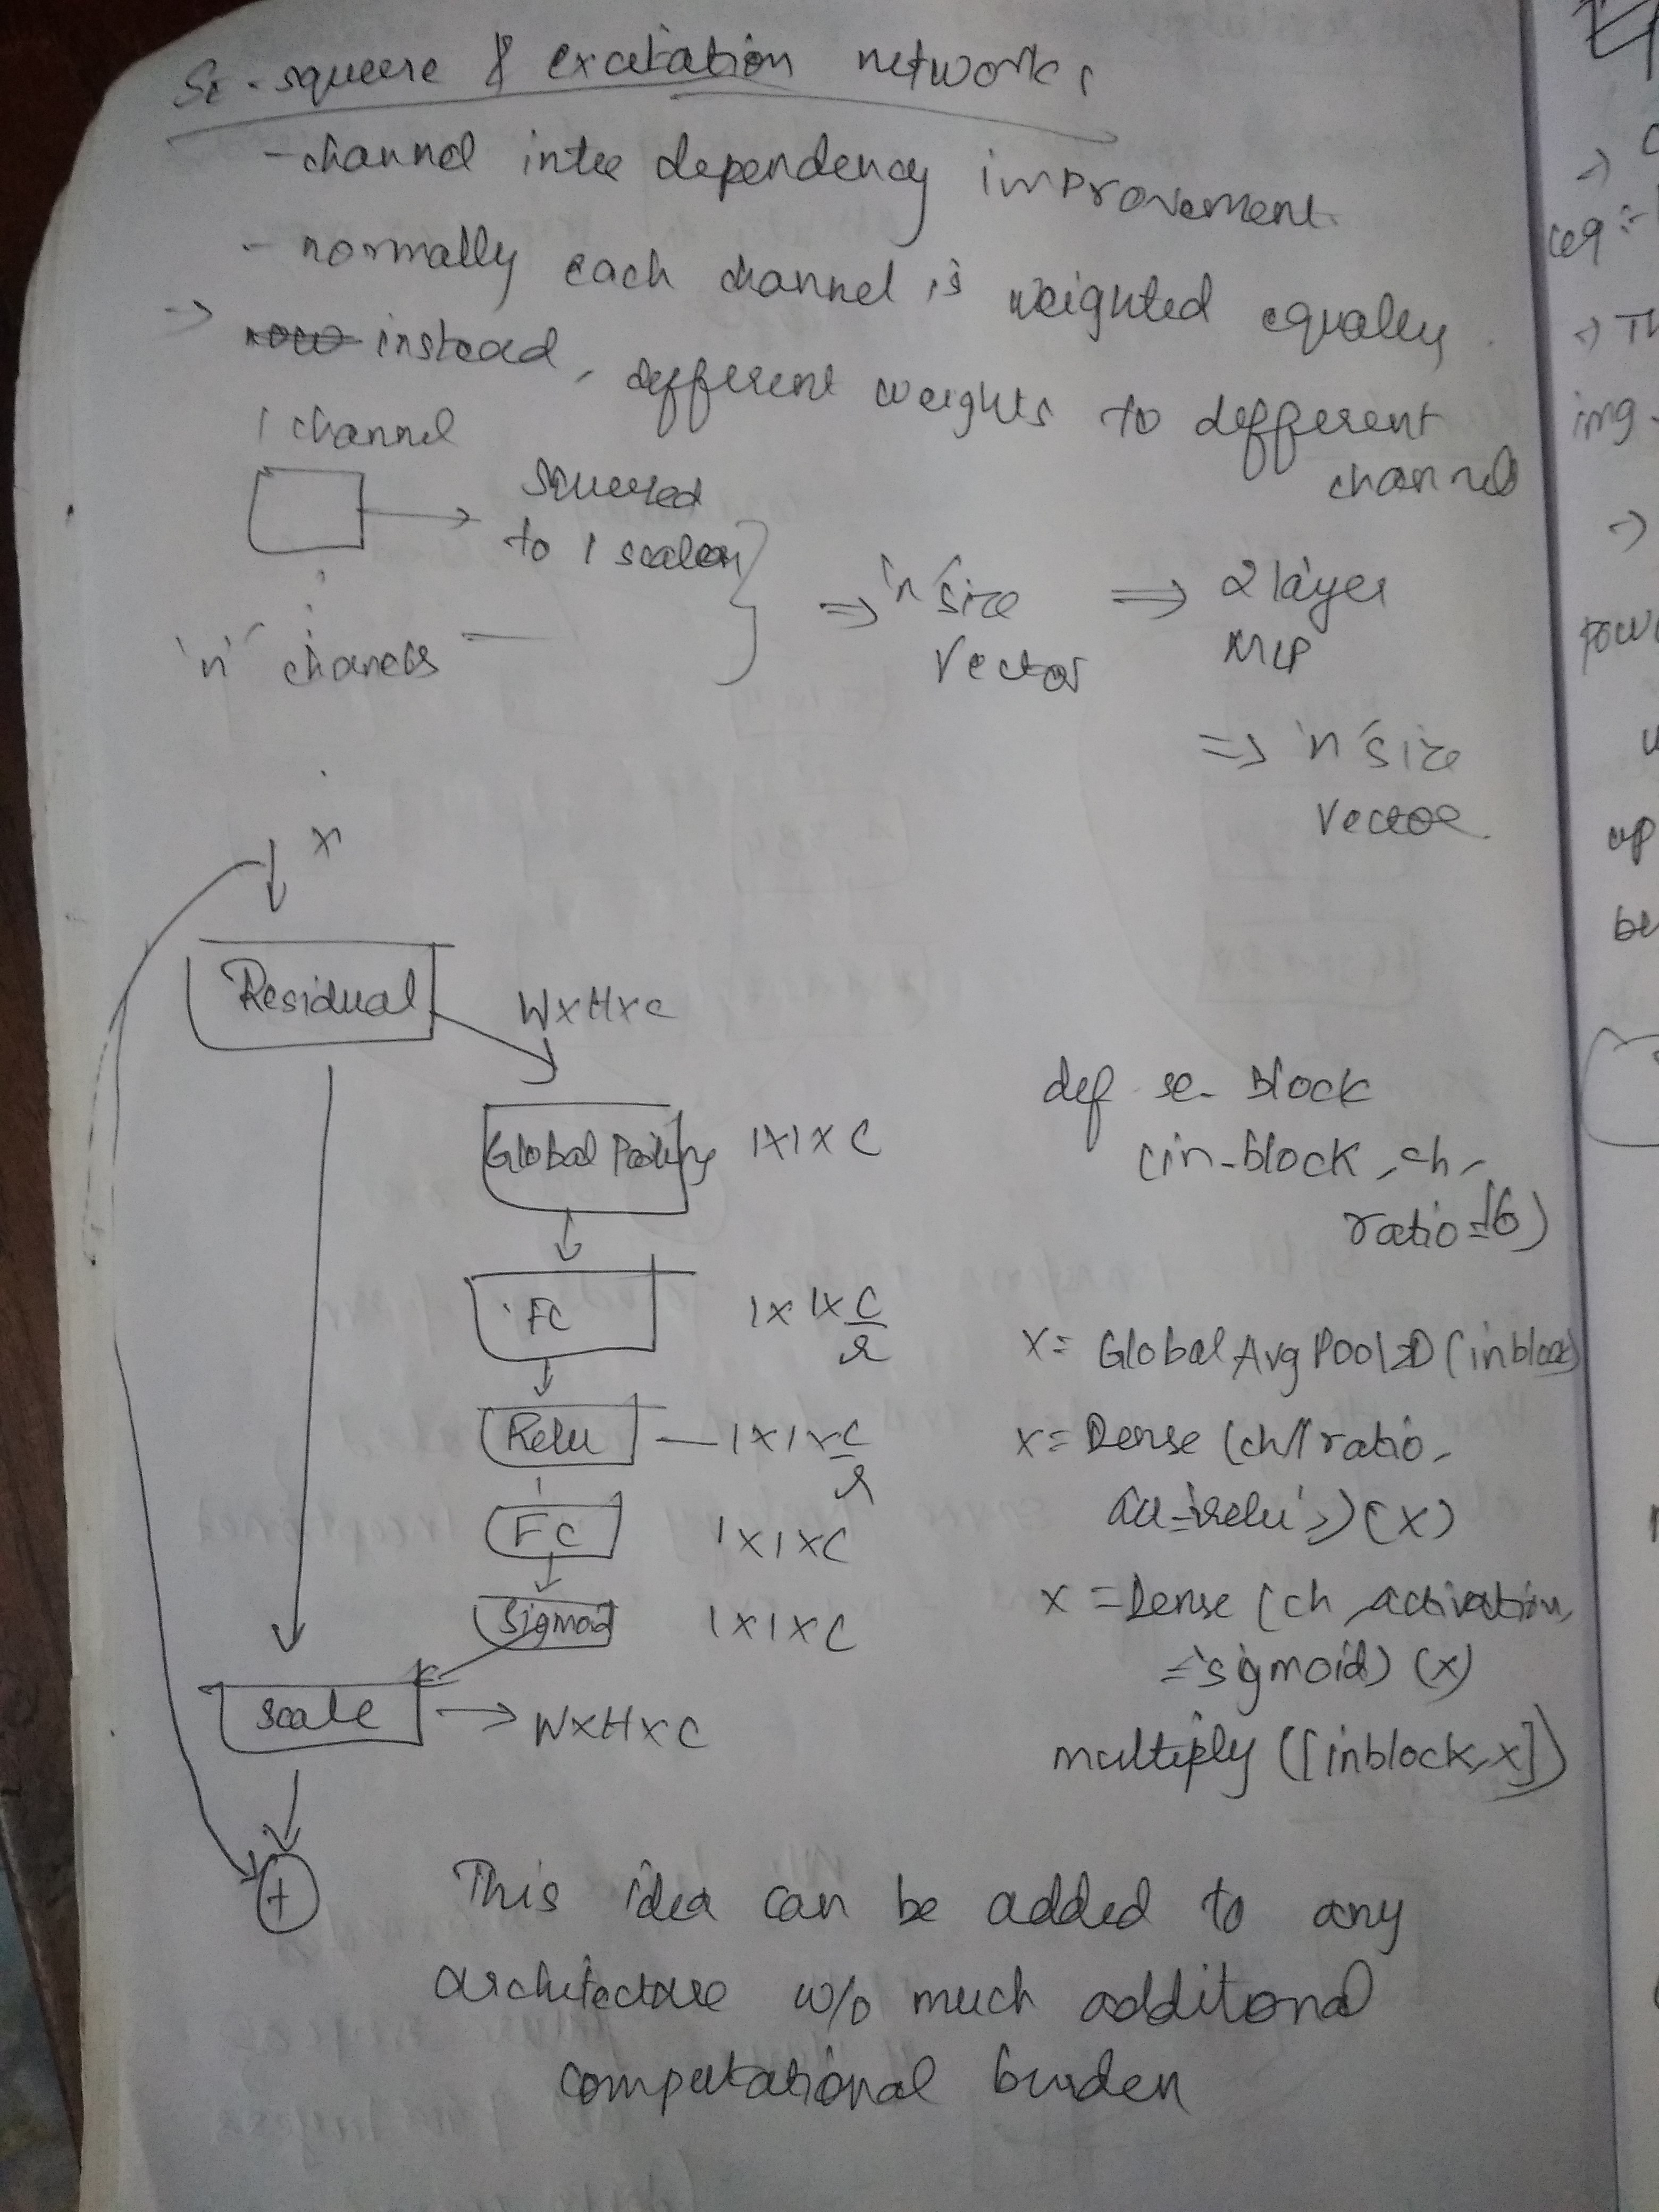 SE - squeeze & excitation networks
- channel inter dependency improvement
- normally each channel is weighted equally.
→ now instead, different weights to different
channels
1 channel
squeezed
to 1 scalar
'n' channels
⇒ 'n' size
vector
⇒ 2 layer
MLP
⇒ 'n' size
vector
x
Residual
WxHxC
Global Pooling 1x1xC
FC 1x1xC/r
Relu — 1x1xC/r
FC 1x1xC
Sigmoid 1x1xC
Scale → WxHxC
+
def se_block
(in_block, ch,
ratio=16)
x= GlobalAvgPool2D (inblock)
x= Dense (ch//ratio,
act='relu')(x)
x = Dense (ch, activation
='sigmoid) (x)
multiply ([inblock,x])
This idea can be added to any
architecture w/o much additional
computational burden
→
eq :-
→ Th
img
→
pow
up
be